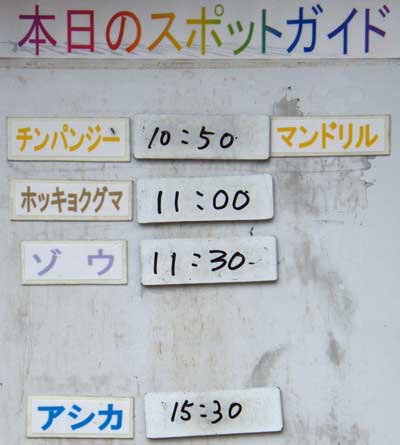 本日のスポットガイド
チンパンジー 10:50 マンドリル
ホッキョクグマ 11:00
ゾウ 11:30
アシカ 15:30